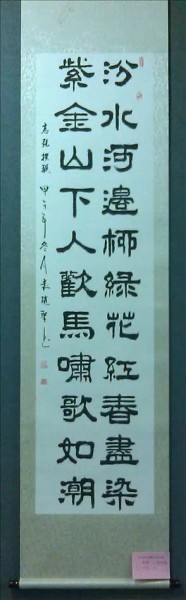 汾水河邊柳綠花紅春盡染
紫金山下人歡馬嘯歌如潮